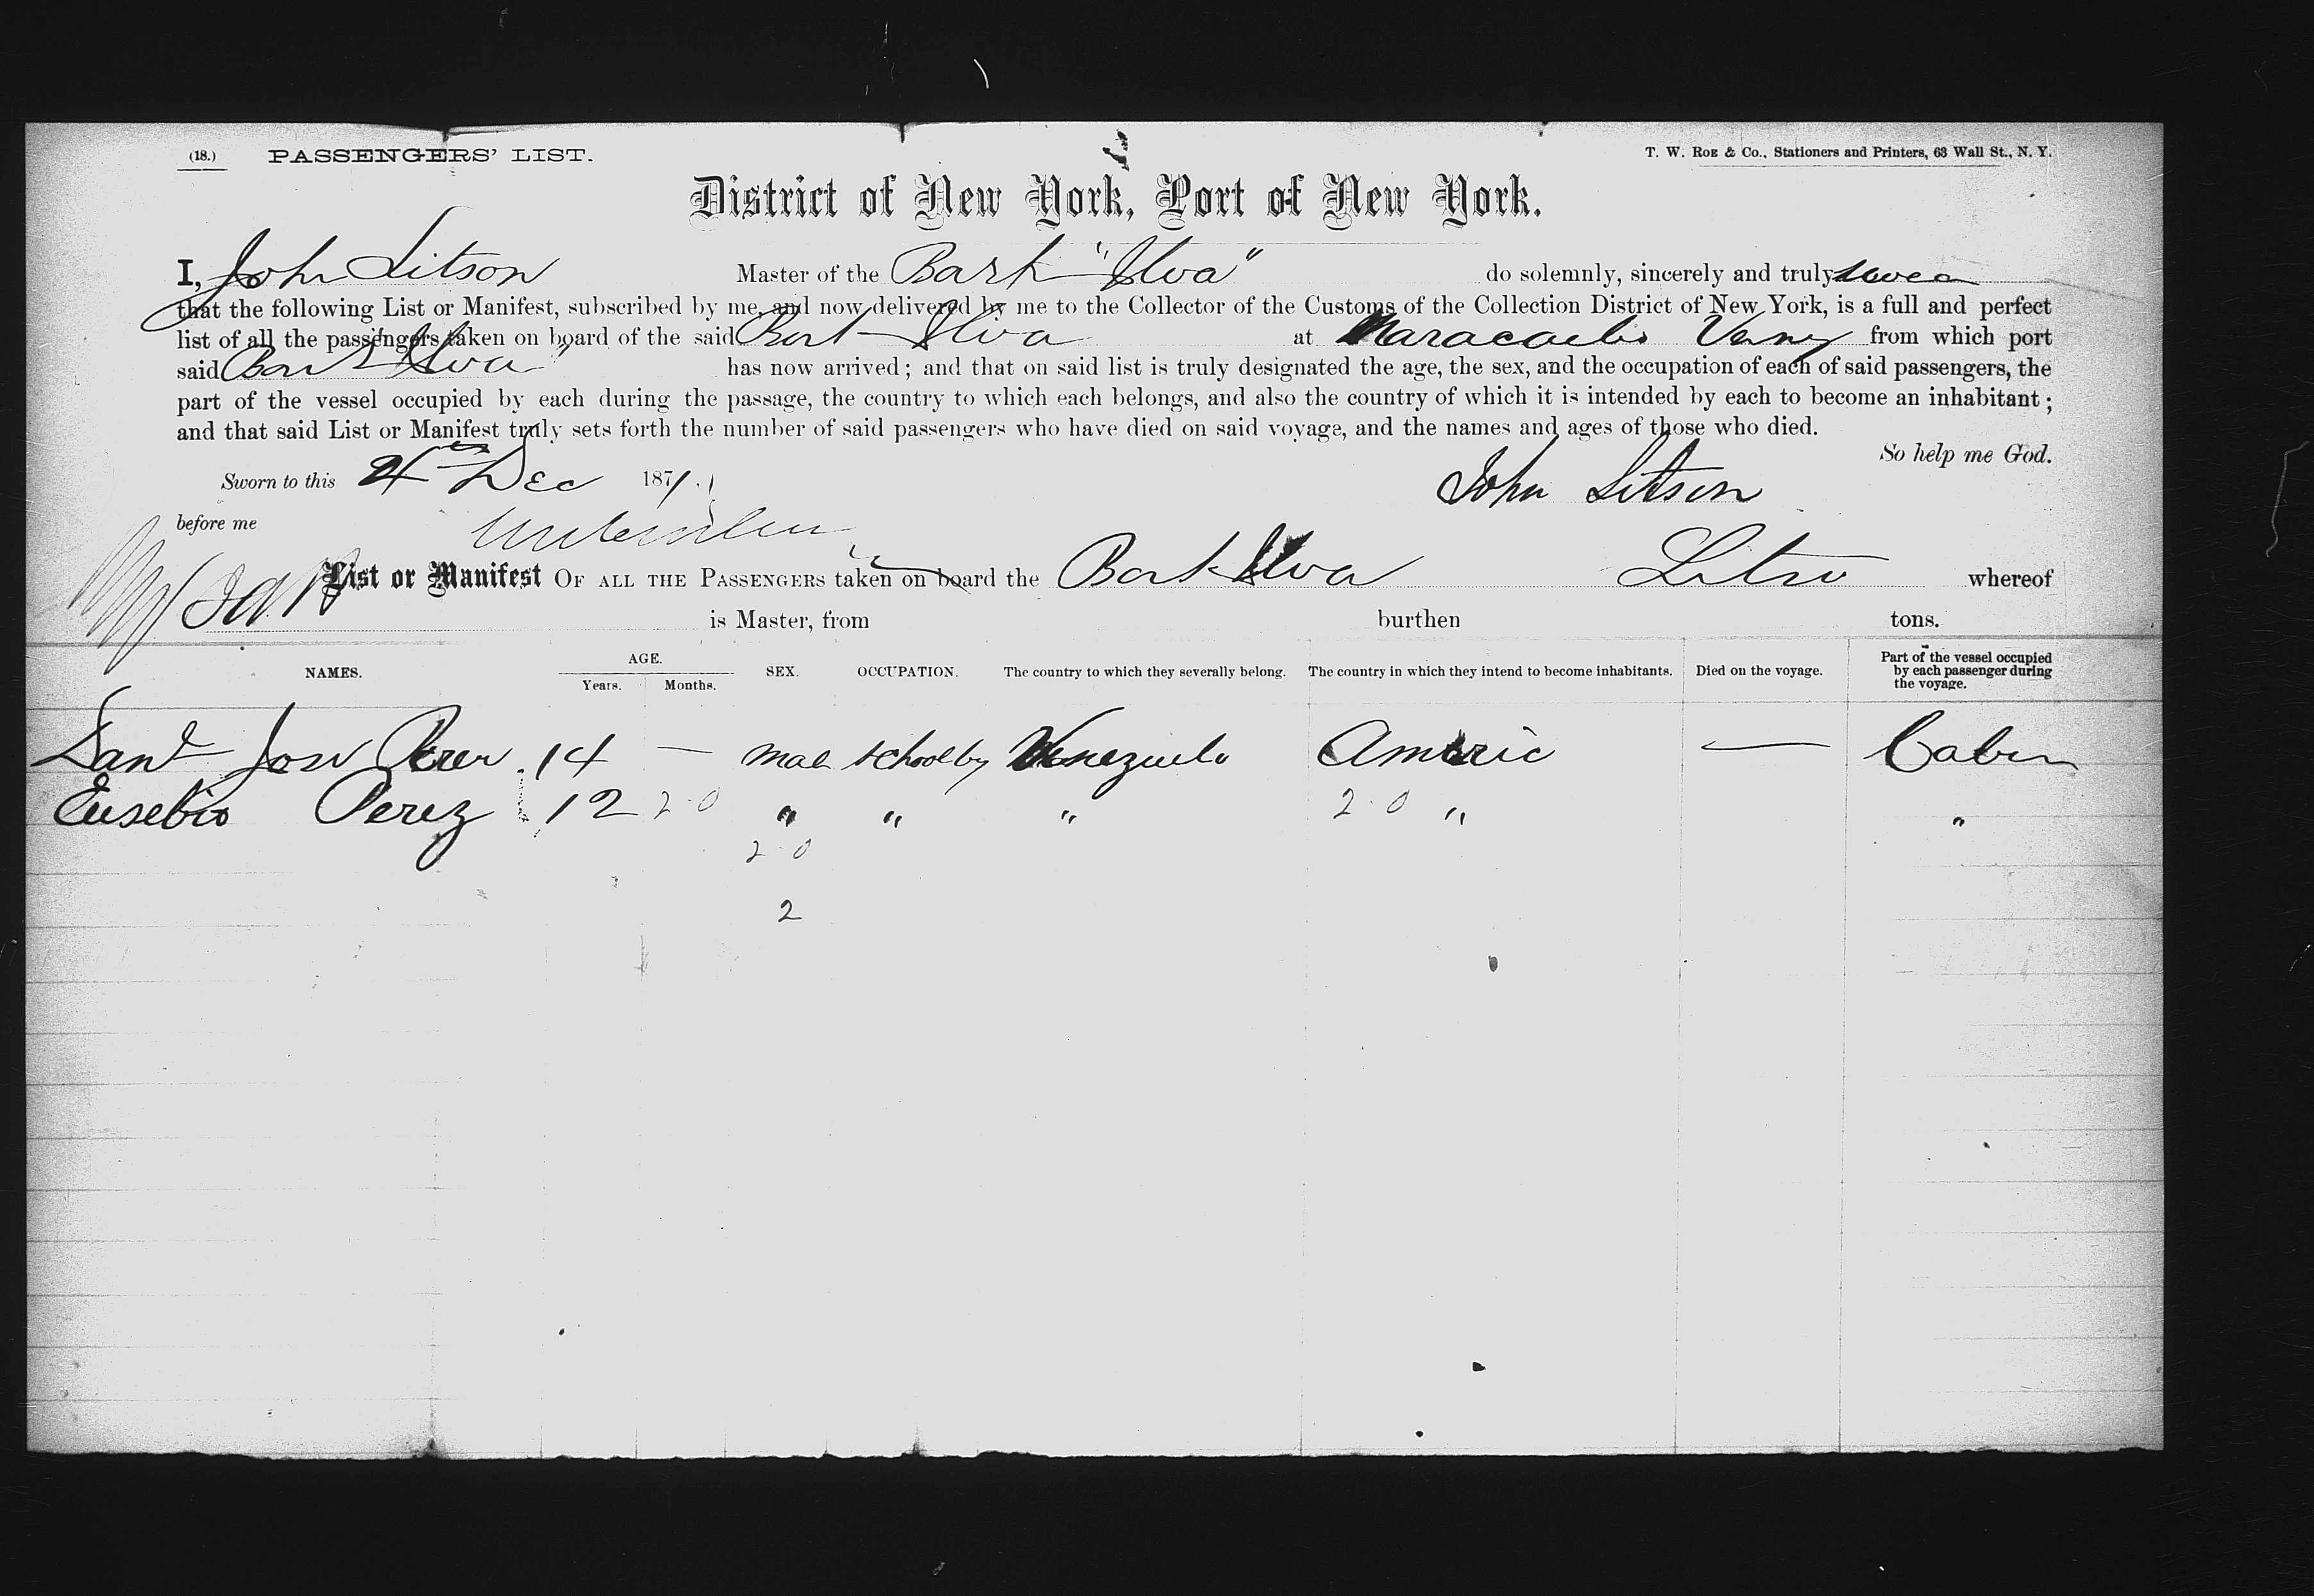 (18.) PASSENGERS' LIST. T. W. ROE & Co., Stationers and Printers, 63 Wall St., N. Y.
District of New York, Port of New York.
I, John Litson Master of the Bark "Ilva" do solemnly, sincerely and truly
that the following List or Manifest, subscribed by me, and now delivered by me to the Collector of the Customs of the Collection District of New York, is a full and perfect
list of all the passengers taken on board of the said Bark Ilva at Maracaibo from which port
said Bark Ilva has now arrived; and that on said list is truly designated the age, the sex, and the occupation of each of said passengers, the
part of the vessel occupied by each during the passage, the country to which each belongs, and also the country of which it is intended by each to become an inhabitant;
and that said List or Manifest truly sets forth the number of said passengers who have died on said voyage, and the names and ages of those who died.
So help me God.
Sworn to this 4th Dec 1871. John Litson
before me
List or Manifest OF ALL THE PASSENGERS taken on board the Bark Ilva whereof
is Master, from burthen tons.
NAMES. AGE. Years. Months. SEX. OCCUPATION. The country to which they severally belong. The country in which they intend to become inhabitants. Died on the voyage. Part of the vessel occupied by each passenger during the voyage.
Perez 14 — Mal Venezuela Americ — Cabin
Eusebio Perez 12 2-0 " " " 2-0 " "
2-0
2